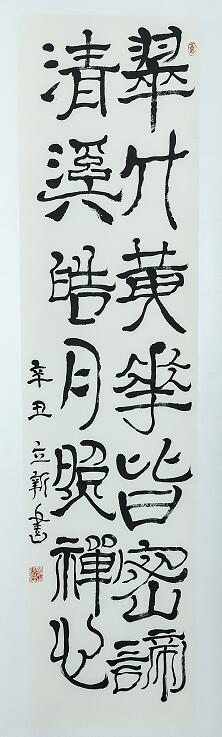 翠竹黄华皆密谛
清溪皓月照禅心
辛丑 立新书